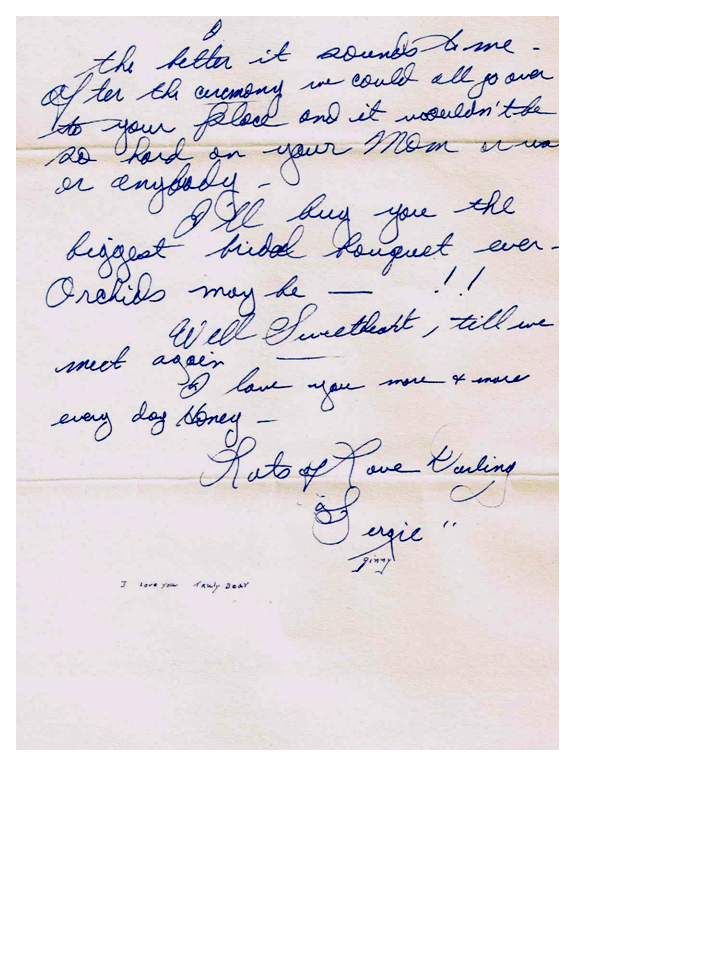 the better it sounds to me -
After the ceremony we could all go over
to your place and it wouldn't be
so hard on your Mom or us
or anybody -
I'll buy you the
biggest bridal bouquet ever -
Orchids may be — !!
Well Sweetheart, till we
meet again —
I love you more & more
every day Honey -
Lots of Love Darling
"Sergie"
ginny
I Love you Truly Dear